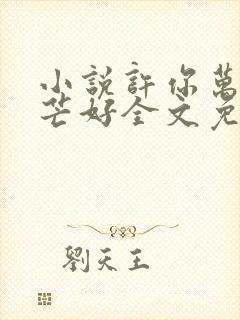 小說許你萬
芒好全文免
劉天王